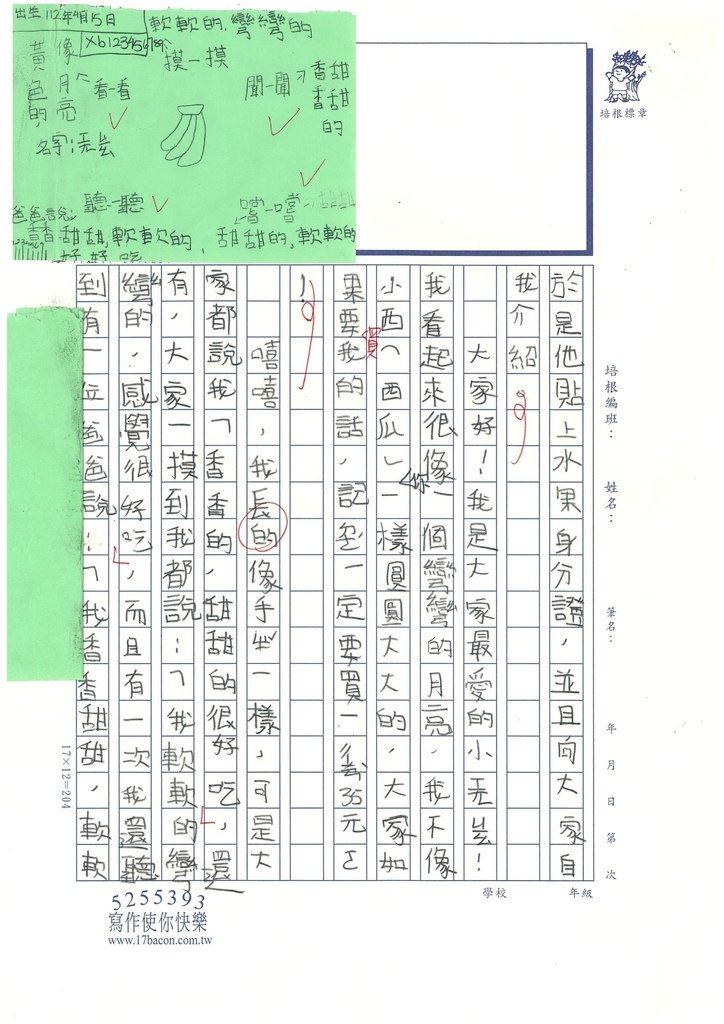 出生112年4月5日
軟軟的,彎彎的
黃色的,
像月亮
看一看
名字:丟丟
摸一摸
聞一聞
香甜香甜的
聽一聽
嚐一嚐
爸爸說:
香甜甜,軟軟的,
甜甜的,軟軟的
好好吃
培根標章
於是他貼上水果身分證,並且向大家自
我介紹
大家好!我是大家最愛的小丟丟!
我看起來很像一個彎彎的月亮,我不像
小西(西瓜)一樣圓圓大大的,大家如
果要買我的話,記
你
一定要買一
35元
!
嘻嘻,我長的像手
一樣,可是大
家都說我「香香的,甜甜的很好吃,還
有,大家一摸到我都說:「我軟軟的彎
彎的,感覺很好吃,而且有一次我還聽
到有一位爸爸說:「我香香甜甜,軟軟
培根編班:
姓名:
筆名:
年 月 日 第 次
學校
年級
17×12=204
5255393
寫作使你快樂
www.17bacon.com.tw